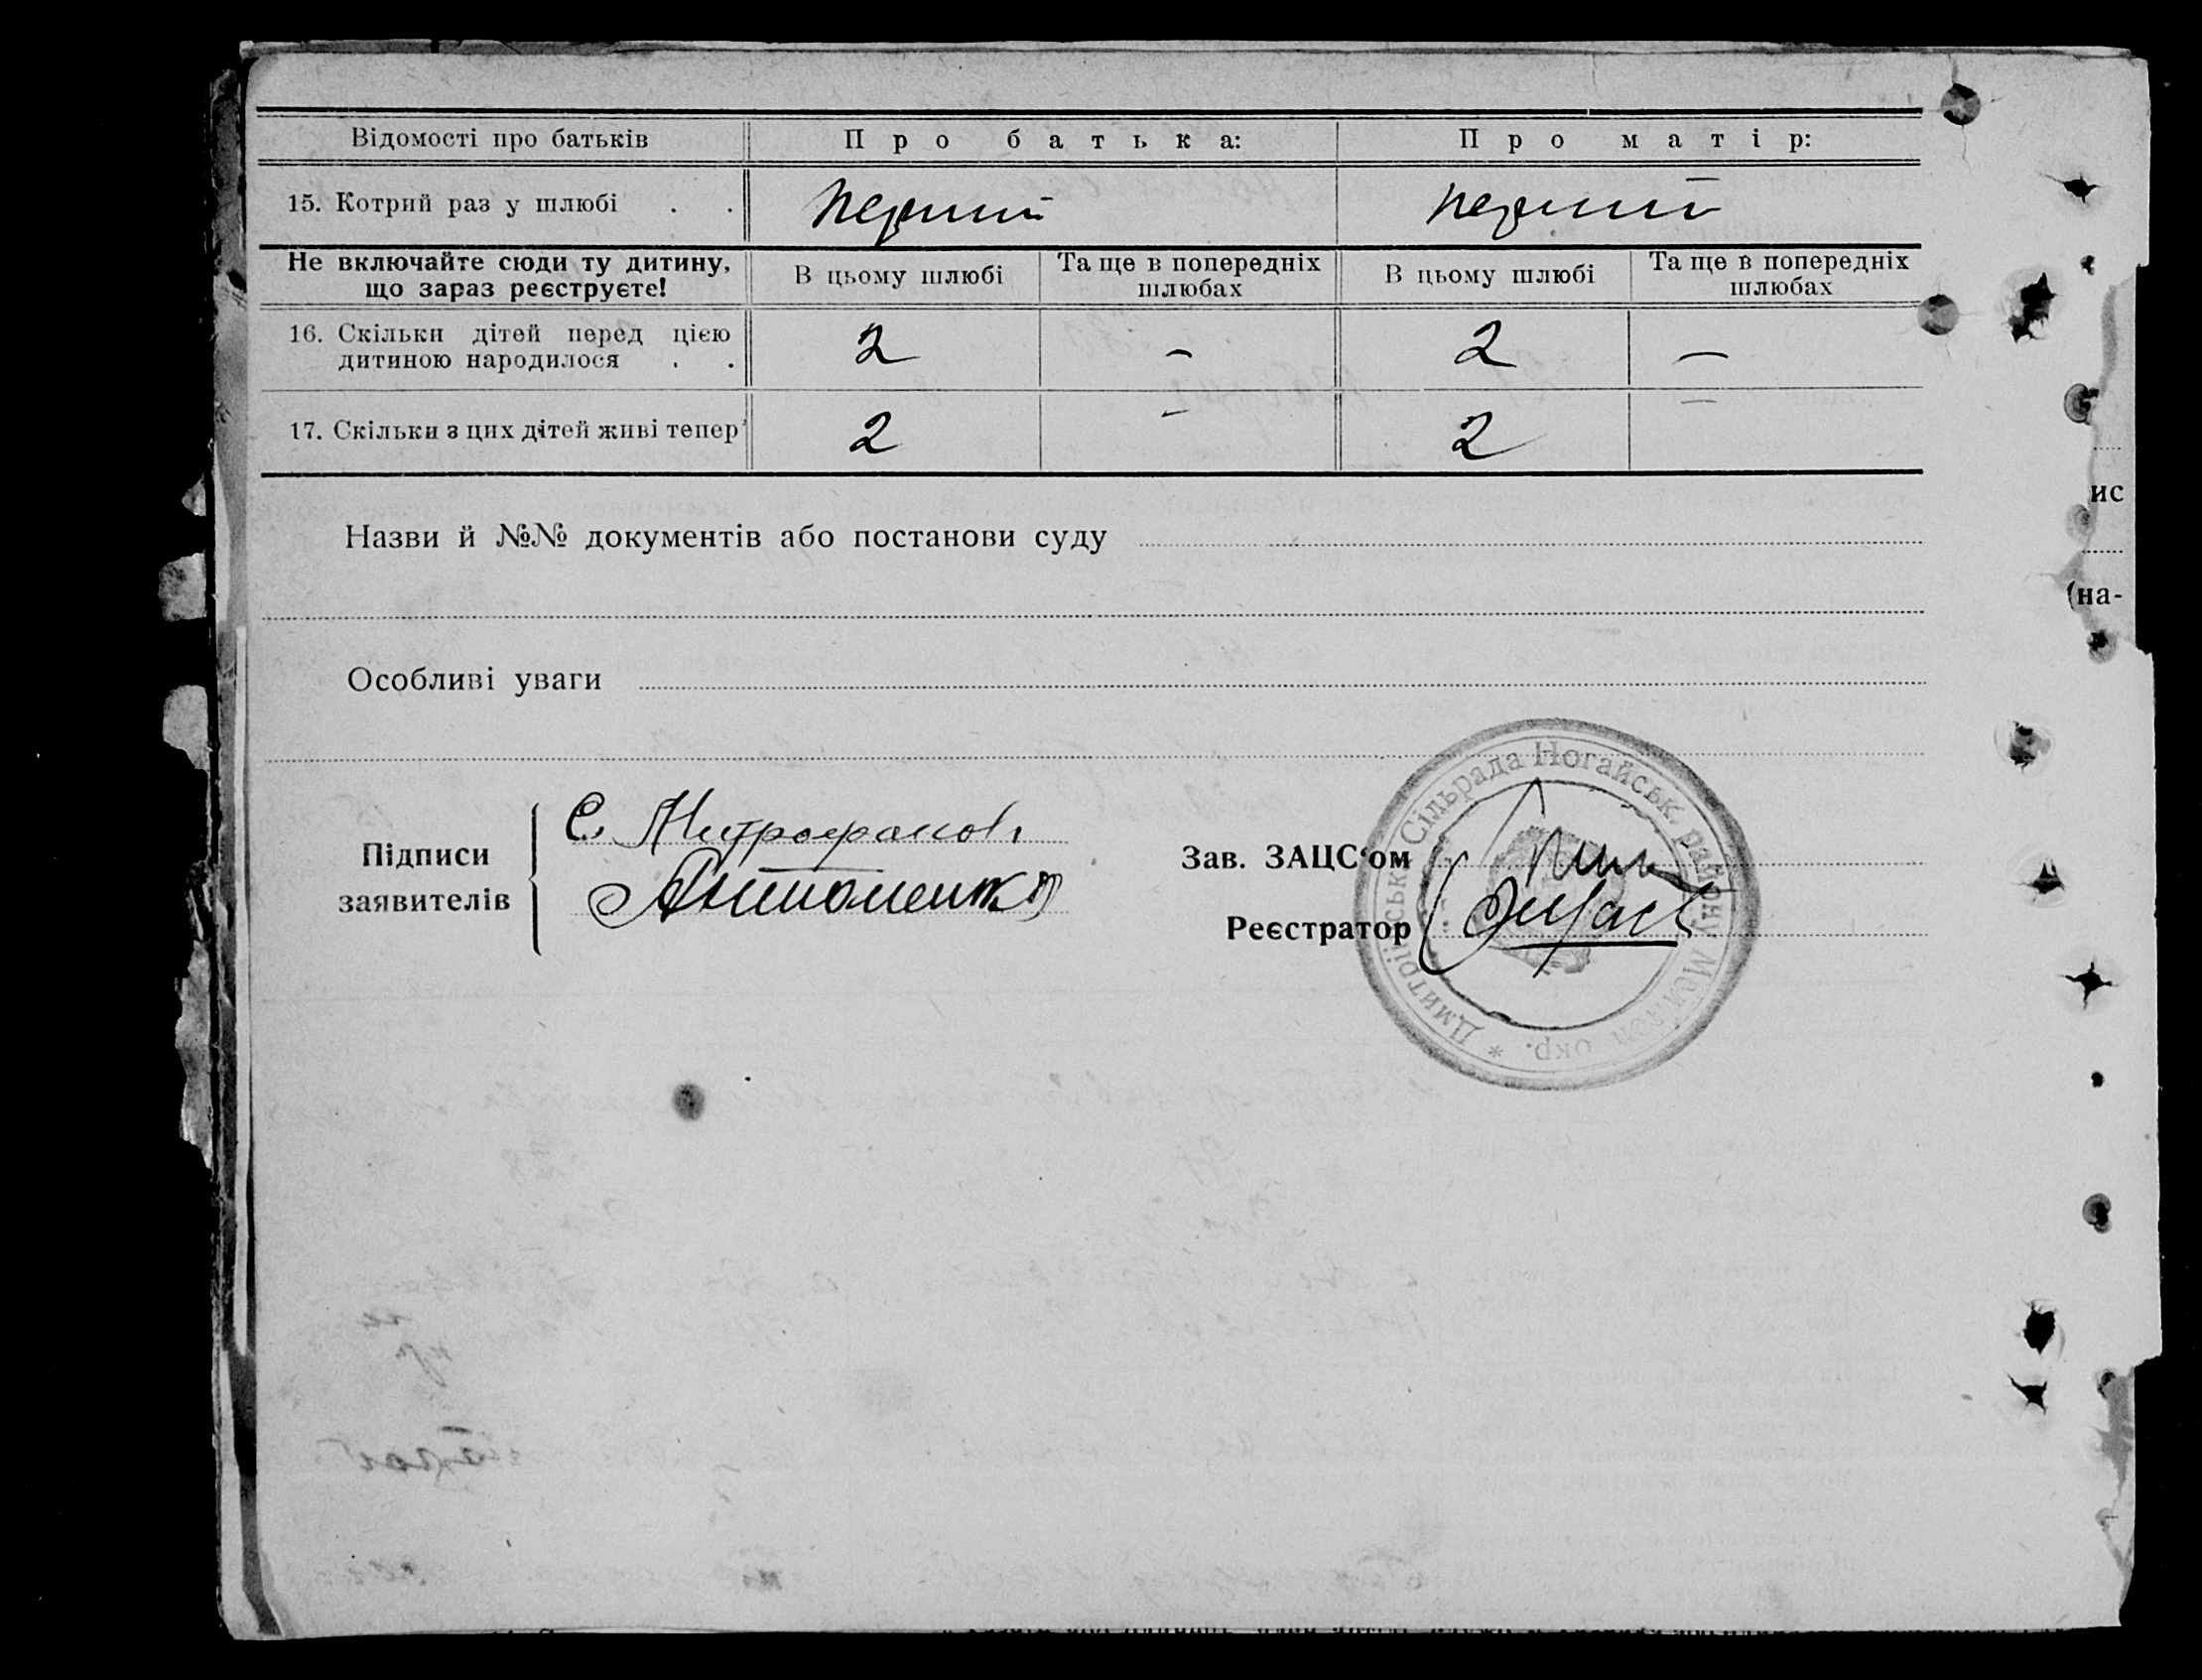 Відомості про батьків Про батька: Про матір:
15. Котрий раз у шлюбі . . перший перший
Не включайте сюди ту дитину, що зараз реєструєте! В цьому шлюбі Та ще в попередніх шлюбах В цьому шлюбі Та ще в попередніх шлюбах
16. Скільки дітей перед цією
дитиною народилося . . 2 – 2 —
17. Скільки з цих дітей живі тепер 2 - 2 —
ис
Назви й №№ документів або постанови суду
(на-
Особливі уваги
Підписи заявителів
С. Митрофанов
Антоненко
Зав. ЗАЦС'ом
Реєстратор
* Дмитрівська Сільрада Ногайськ. району Мелітоп окр.